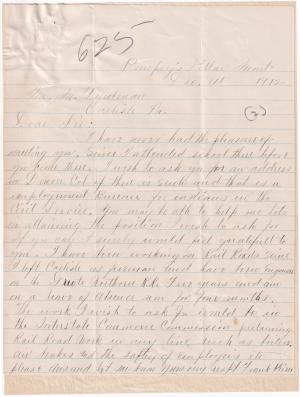 625
Pompey's Pillar Mont
Dec. 1st - 1912
Mr. M. Friedman
Carlisle Pa.
(2)
Dear Sir:
I have never had the pleasure of
meeting you. Since I attended school there before
you came there. I wish to ask you for an address
in Denver Col if there is such and that is a
employment Bureau for indians in the
Civil Service. You may be able to help me lots
in obtaining the position I wish to ask for
if you can I surely would feel gratefull to
you. I have been working on Rail Roads Since
I left Carlisle as fireman and have been engineer
on the Northern R.R. Two years and am
on a leave of absence now for Four months.
The work I wish to ask for would be in
the Interstate Commerce Commission pertaining
Rail Road Work in any line such as boilers
air brakes and the safety of employees etc
please and let me hear from you resp't Frank